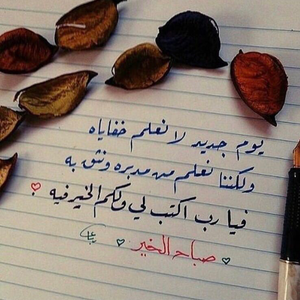 يوم جديد لا نعلم خفاياه
ولكننا نعلم من مدبره ونثق به
فيا رب اكتب لي ولكم الخير فيه
صباح الخير